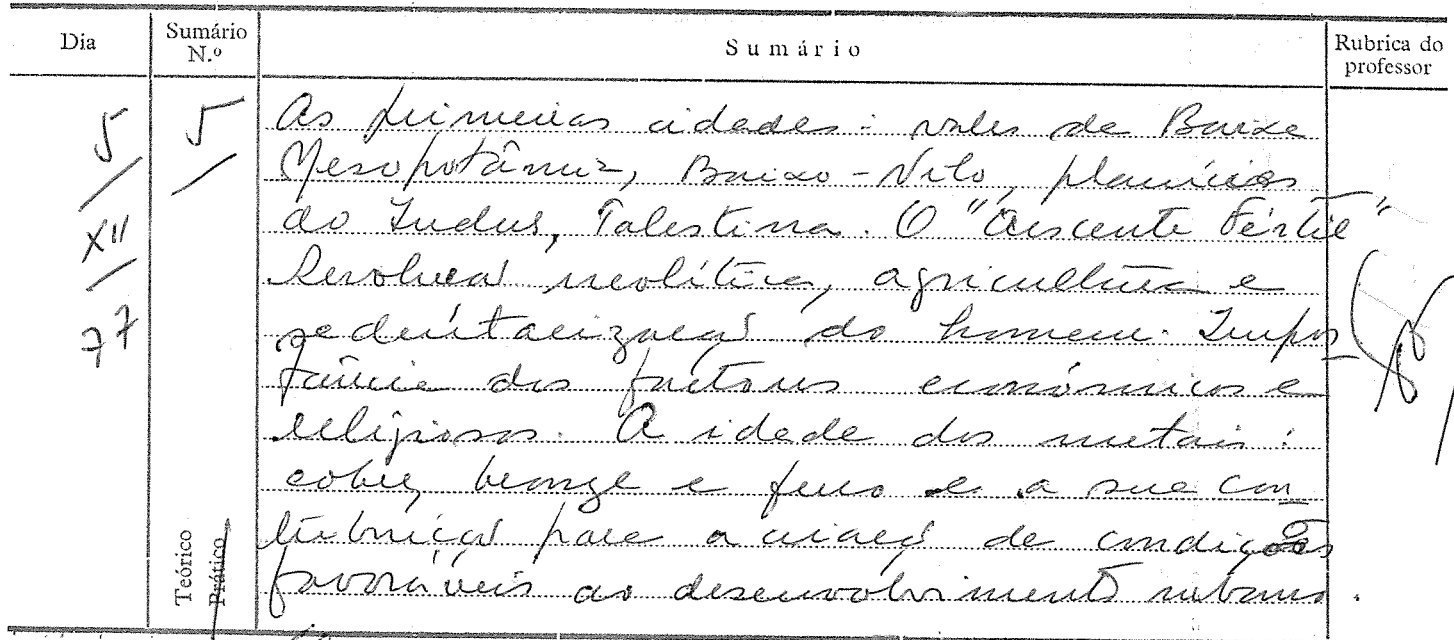 Dia
Sumário N.º
Sumário
Rubrica do professor
5
/
XII
/
77
5
/
As primeiras cidades: vales da Baixa
Mesopotâmia, Baixo-Nilo, planícies
do Indus, Palestina. O "Crescente Fértil"
Revolução neolítica, agricultura e
sedentarização do homem. Impor
tância dos factores económicos e
religiosos. A idade dos metais:
cobre, bronze e ferro e a sua con
tribuição para a criação de condições
favoráveis ao desenvolvimento urbano.
Teórico
Prático